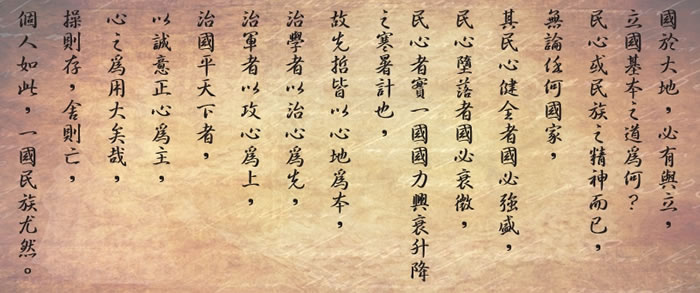 國於大地，必有與立，
立國基本之道爲何？
民心或民族之精神而已，
無論任何國家，
其民心健全者國必強盛，
民心墮落者國必衰微，
民心者實一國國力興衰升降
之寒暑計也，
故先哲皆以心地爲本，
治學者以治心爲先，
治軍者以攻心爲上，
治國平天下者，
以誠意正心爲主，
心之爲用大矣哉，
操則存，舍則亡，
個人如此，一國民族尤然。